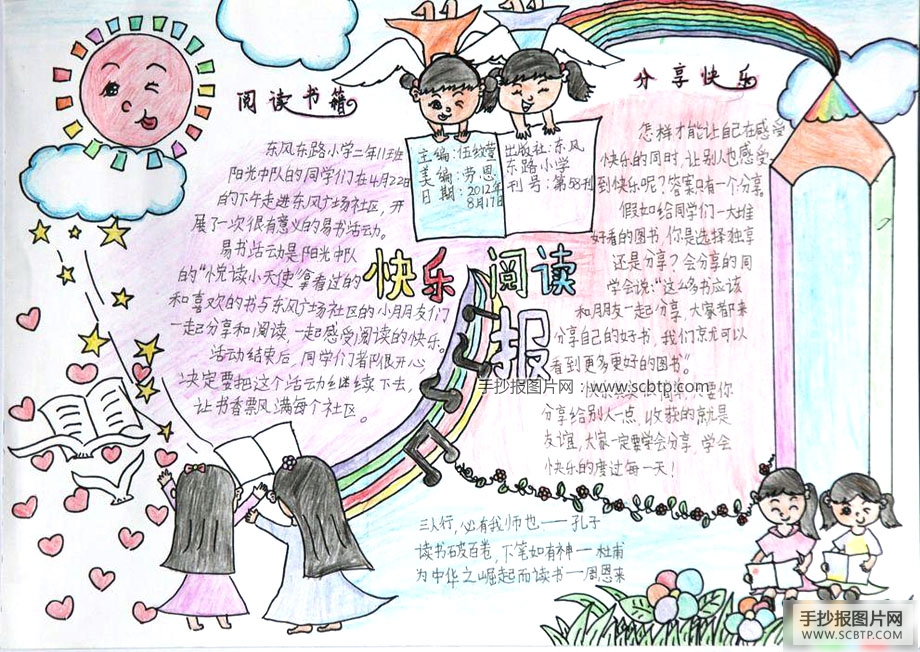 阅读书籍
东风东路小学二年11班
阳光中队的同学们在4月22日
的下午走进东风广场社区，开
展了一次很有意义的易书活动。
易书活动是阳光中队
的“悦读小天使”拿看过的
和喜欢的书与东风广场社区的小月朋友们
一起分享和阅读，一起感受阅读的快乐。
活动结束后，同学们都很开心
决定要把这个活动继续下去，
让书香飘风满每个社区。
主编：伍纹萱
美编：劳恩
日期：2012年
8月17日
出版社：东风
东路小学
刊号：第58刊
快乐阅读
报
分享快乐
怎样才能让自己在感受
快乐的同时，让别人也感受
到快乐呢？答案只有一个：分享。
假如给同学们一大堆
好看的图书，你是选择独享
还是分享？会分享的同
学会说：“这么多书应该
和朋友一起分享，大家都来
分享自己的好书，我们就可以
看到更多更好的图书”
快乐 要你
分享给别人一点，收获的就是
友谊，大家一定要学会分享，学会
快乐的度过每一天！
手抄报图片网：www.scbtp.com
三人行，必有我师也——孔子
读书破百卷，下笔如有神—杜甫
为中华之崛起而读书—周恩来
手抄报图片网
WWW.SCBTP.COM